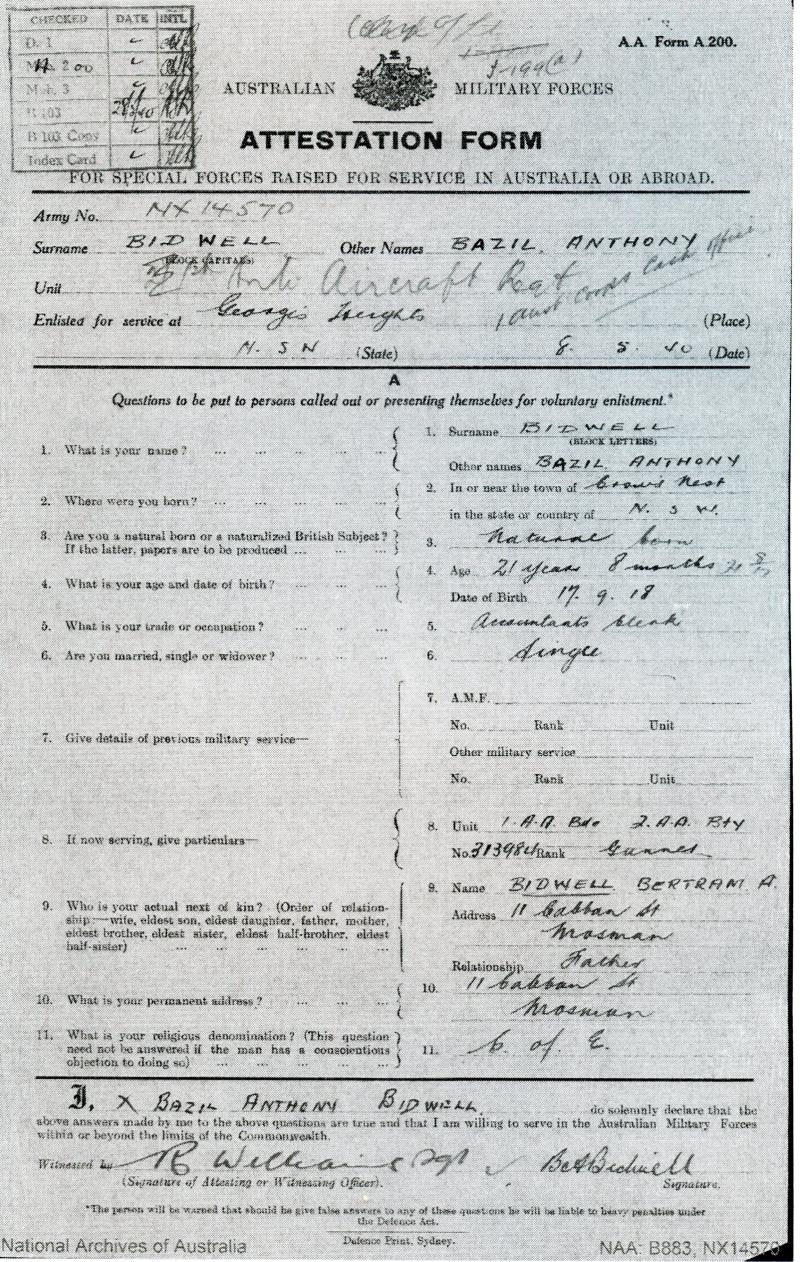 CHECKED DATE INTL
D. 1
M.b. 200
M.b. 3
B 103
B 103 Copy
Index Card
A.A. Form A.200.
AUSTRALIAN MILITARY FORCES
ATTESTATION FORM
FOR SPECIAL FORCES RAISED FOR SERVICE IN AUSTRALIA OR ABROAD.
Army No. NX 14570
Surname BIDWELL Other Names BAZIL ANTHONY
(BLOCK CAPITALS)
Unit Anti Aircraft Regt
1 Aust Corps Cash Office
Enlisted for service at Georges Heights (Place)
N. S W (State) 8. 5. 40 (Date)
A
Questions to be put to persons called out or presenting themselves for voluntary enlistment.*
1. What is your name? ... ... ... ... 1. Surname BIDWELL
(BLOCK LETTERS)
Other names BAZIL ANTHONY
2. Where were you born? ... ... ... ... 2. In or near the town of Crows Nest
in the state or country of N. S W.
3. Are you a natural born or a naturalized British Subject? 3. Natural born
If the latter, papers are to be produced ... ... ...
4. What is your age and date of birth? ... ... ... 4. Age 21 years 8 months 21 8/12
Date of Birth 17. 9. 18
5. What is your trade or occupation? ... ... ... 5. Accountants Clerk
6. Are you married, single or widower? ... ... ... 6. Single
7. Give details of previous military service— 7. A.M.F.
No. Rank Unit
Other military service
No. Rank Unit
8. If now serving, give particulars— 8. Unit 1. A.A. Bde 2. A.A. Bty
No. 313984 Rank Gunner
9. Who is your actual next of kin? (Order of relation-
ship:—wife, eldest son, eldest daughter, father, mother,
eldest brother, eldest sister, eldest half-brother, eldest
half-sister) ... ... ... ... ...
9. Name BIDWELL BERTRAM A.
Address 11 Cabban St
Mosman
Relationship Father
10. What is your permanent address? ... ... ... 10. 11 Cabban St
Mosman
11. What is your religious denomination? (This question
need not be answered if the man has a conscientious
objection to doing so) ... ... ... ... ...
11. C. of E.
I, X BAZIL ANTHONY BIDWELL. do solemnly declare that the
above answers made by me to the above questions are true and that I am willing to serve in the Australian Military Forces
within or beyond the limits of the Commonwealth.
Witnessed by R Williams Sgt BABidwell
(Signature of Attesting or Witnessing Officer). Signature.
*The person will be warned that should he give false answers to any of these questions he will be liable to heavy penalties under
the Defence Act.
Defence Print, Sydney.
National Archives of Australia NAA: B883, NX14570